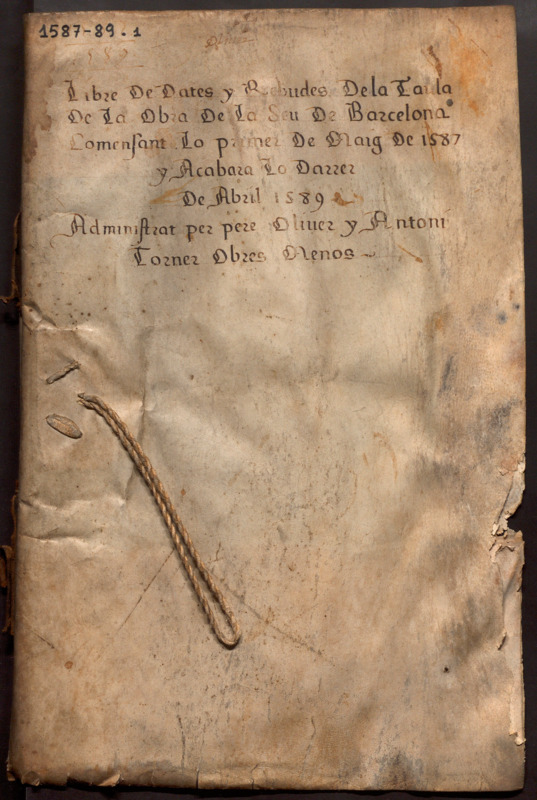 1587-89.1
1589
Libre De Dates y Rebudes De la Taula
De La Obra De La Seu De Barcelona
Comensant Lo primer De Maig De 1587
y Acabara Lo Darrer
De Abril 1589
Administrat per pere Oliuer y Antoni
Torner Obres Menos